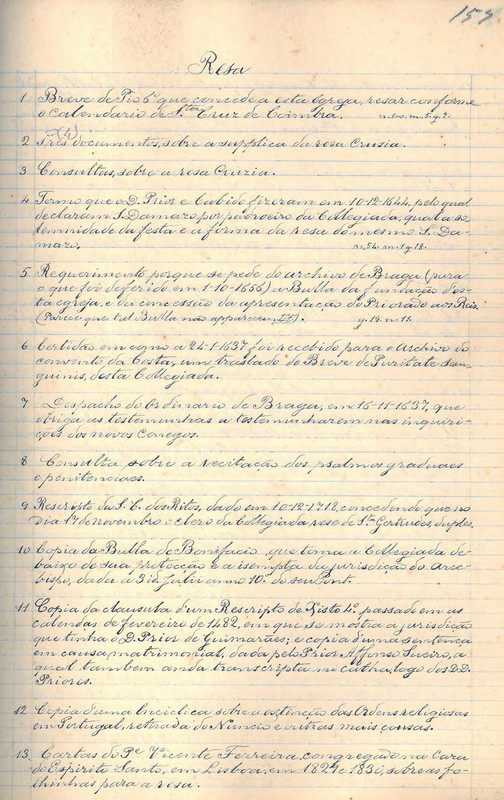 157
Resa
1 Breve de Pio 5º que concede a esta Egreja, resar conforme
o Calendario de Sta Cruz de Coimbra.
2 Tres documentos, sobre a supplica da resa Crusia.
(4)
3 Consultas, sobre a resa Cruzia.
4 Termo que o D. Prior e Cabido fizeram em 10-12-1644, pelo qual
declaram S. Damazo por padroeiro da Collegiada, qual a so-
lemnidade da festa e a fórma da resa do mesmo S. Da-
mazo. n. 54. m. 1 g. 12.
5 Requerimento porque se pede do archivo de Braga (para
o que foi deferido em 1-10-1656) a Bulla da fundação d'es-
ta egreja, e da concessão da apresentação do Priorado aos Reis.
(Parece que tal Bulla não appareceu). g. 14. m. 11.
6 Certidão em como a 24-1-1637 foi recebido para o Archivo do
convento da Costa, um traslado do Breve de Puritate San-
guinis, desta Collegiada.
7 Despacho do Ordinario de Braga, em 16-11-1637, que
obriga as testemunhas a testemunharem nas inquiri-
ções dos novos Conegos.
8 Consulta sobre a recitação dos psalmos graduaes
e penitenciaes.
9 Rescripto da S. C. dos Ritos, dado em 10-12-1718, concedendo que no
dia 17 de novembro o clero da Collegiada rese de Sta Gertrudes, duplex.
10 Copia da Bulla de Bonifacio que toma a Collegiada de-
baixo de sua protecção e a isempta da jurisdicção do Arce-
bispo, dada a 3 de Julho anno 10º do seu Pont.
11 Copia da clausula d'um Rescripto de Xisto 4º, passado em as
calendas de fevereiro de 1482, em que se mostra a jurisdicção
que tinha o D. Prior de Guimarães; e copia d'uma sentença
em causa matrimonial, dada pelo Prior Affonso a
qual tambem anda transcripta no cathalogo dos D.D.
Priores.
12 Copia d'uma Enciclica sobre a extincção das Ordens religiosas
em Portugal, retirada do Nuncio e outras mais causas.
13 Cartas do Pe Vicente Ferreira, congregado na Caza
do Espirito Santo, em Lisboa, em 1829 e 1830, sobre as fo-
lhinhas para a resa.